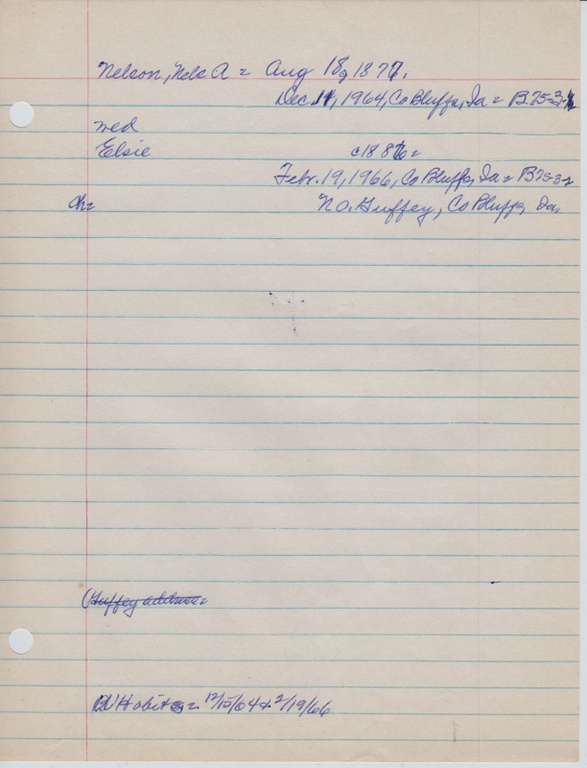 Nelson, Nels A = Aug 18, 1877.
Dec. 14, 1964, Co Bluffs, Ia = B75-3-
wed
Elsie c1886 =
Febr. 19, 1966, Co Bluffs, Ia = B75-3-2
ch =
N.O. Guffey, Co Bluffs, Ia,
(Guffey address =
Obits = 12/15/64 & 2/19/66